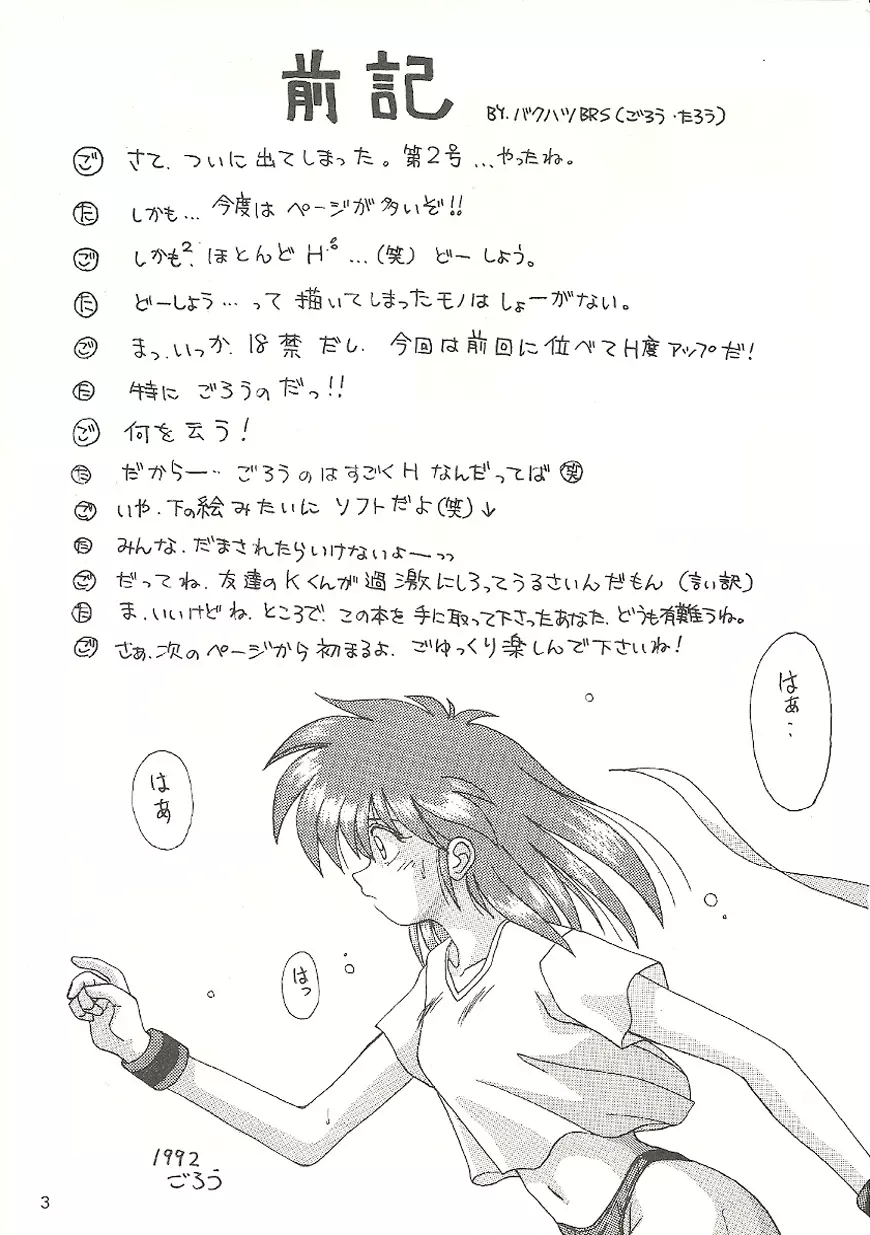 前記
BY.バクハツBRS(ごろう・たろう)
ご さて、ついに出てしまった。第2号…やったね。
た しかも…今度はページが多いぞ!!
ご しかも²、ほとんどH…(笑)どーしよう。
た どーしよう…って描いてしまったモノはしょーがない。
ご まっ、いっか、18禁だし、今回は前回に位べてH度アップだ!
た 特にごろうのだっ!!
ご 何を云う!
た だからー…ごろうのはすごくHなんだってば笑
ご いや、下の絵みたいにソフトだよ(笑)↓
た みんな、だまされたらいけないよーっっ
ご だってね、友達のKくんが過激にしろってうるさいんだもん(言い訳)
た ま、いいけどね、ところで、この本を手に取って下さったあなた、どうも有難うね。
ご さぁ、次のページから初まるよ、ごゆっくり楽しんで下さいね!
はぁ…
はぁ
はっ
1992
ごろう
3